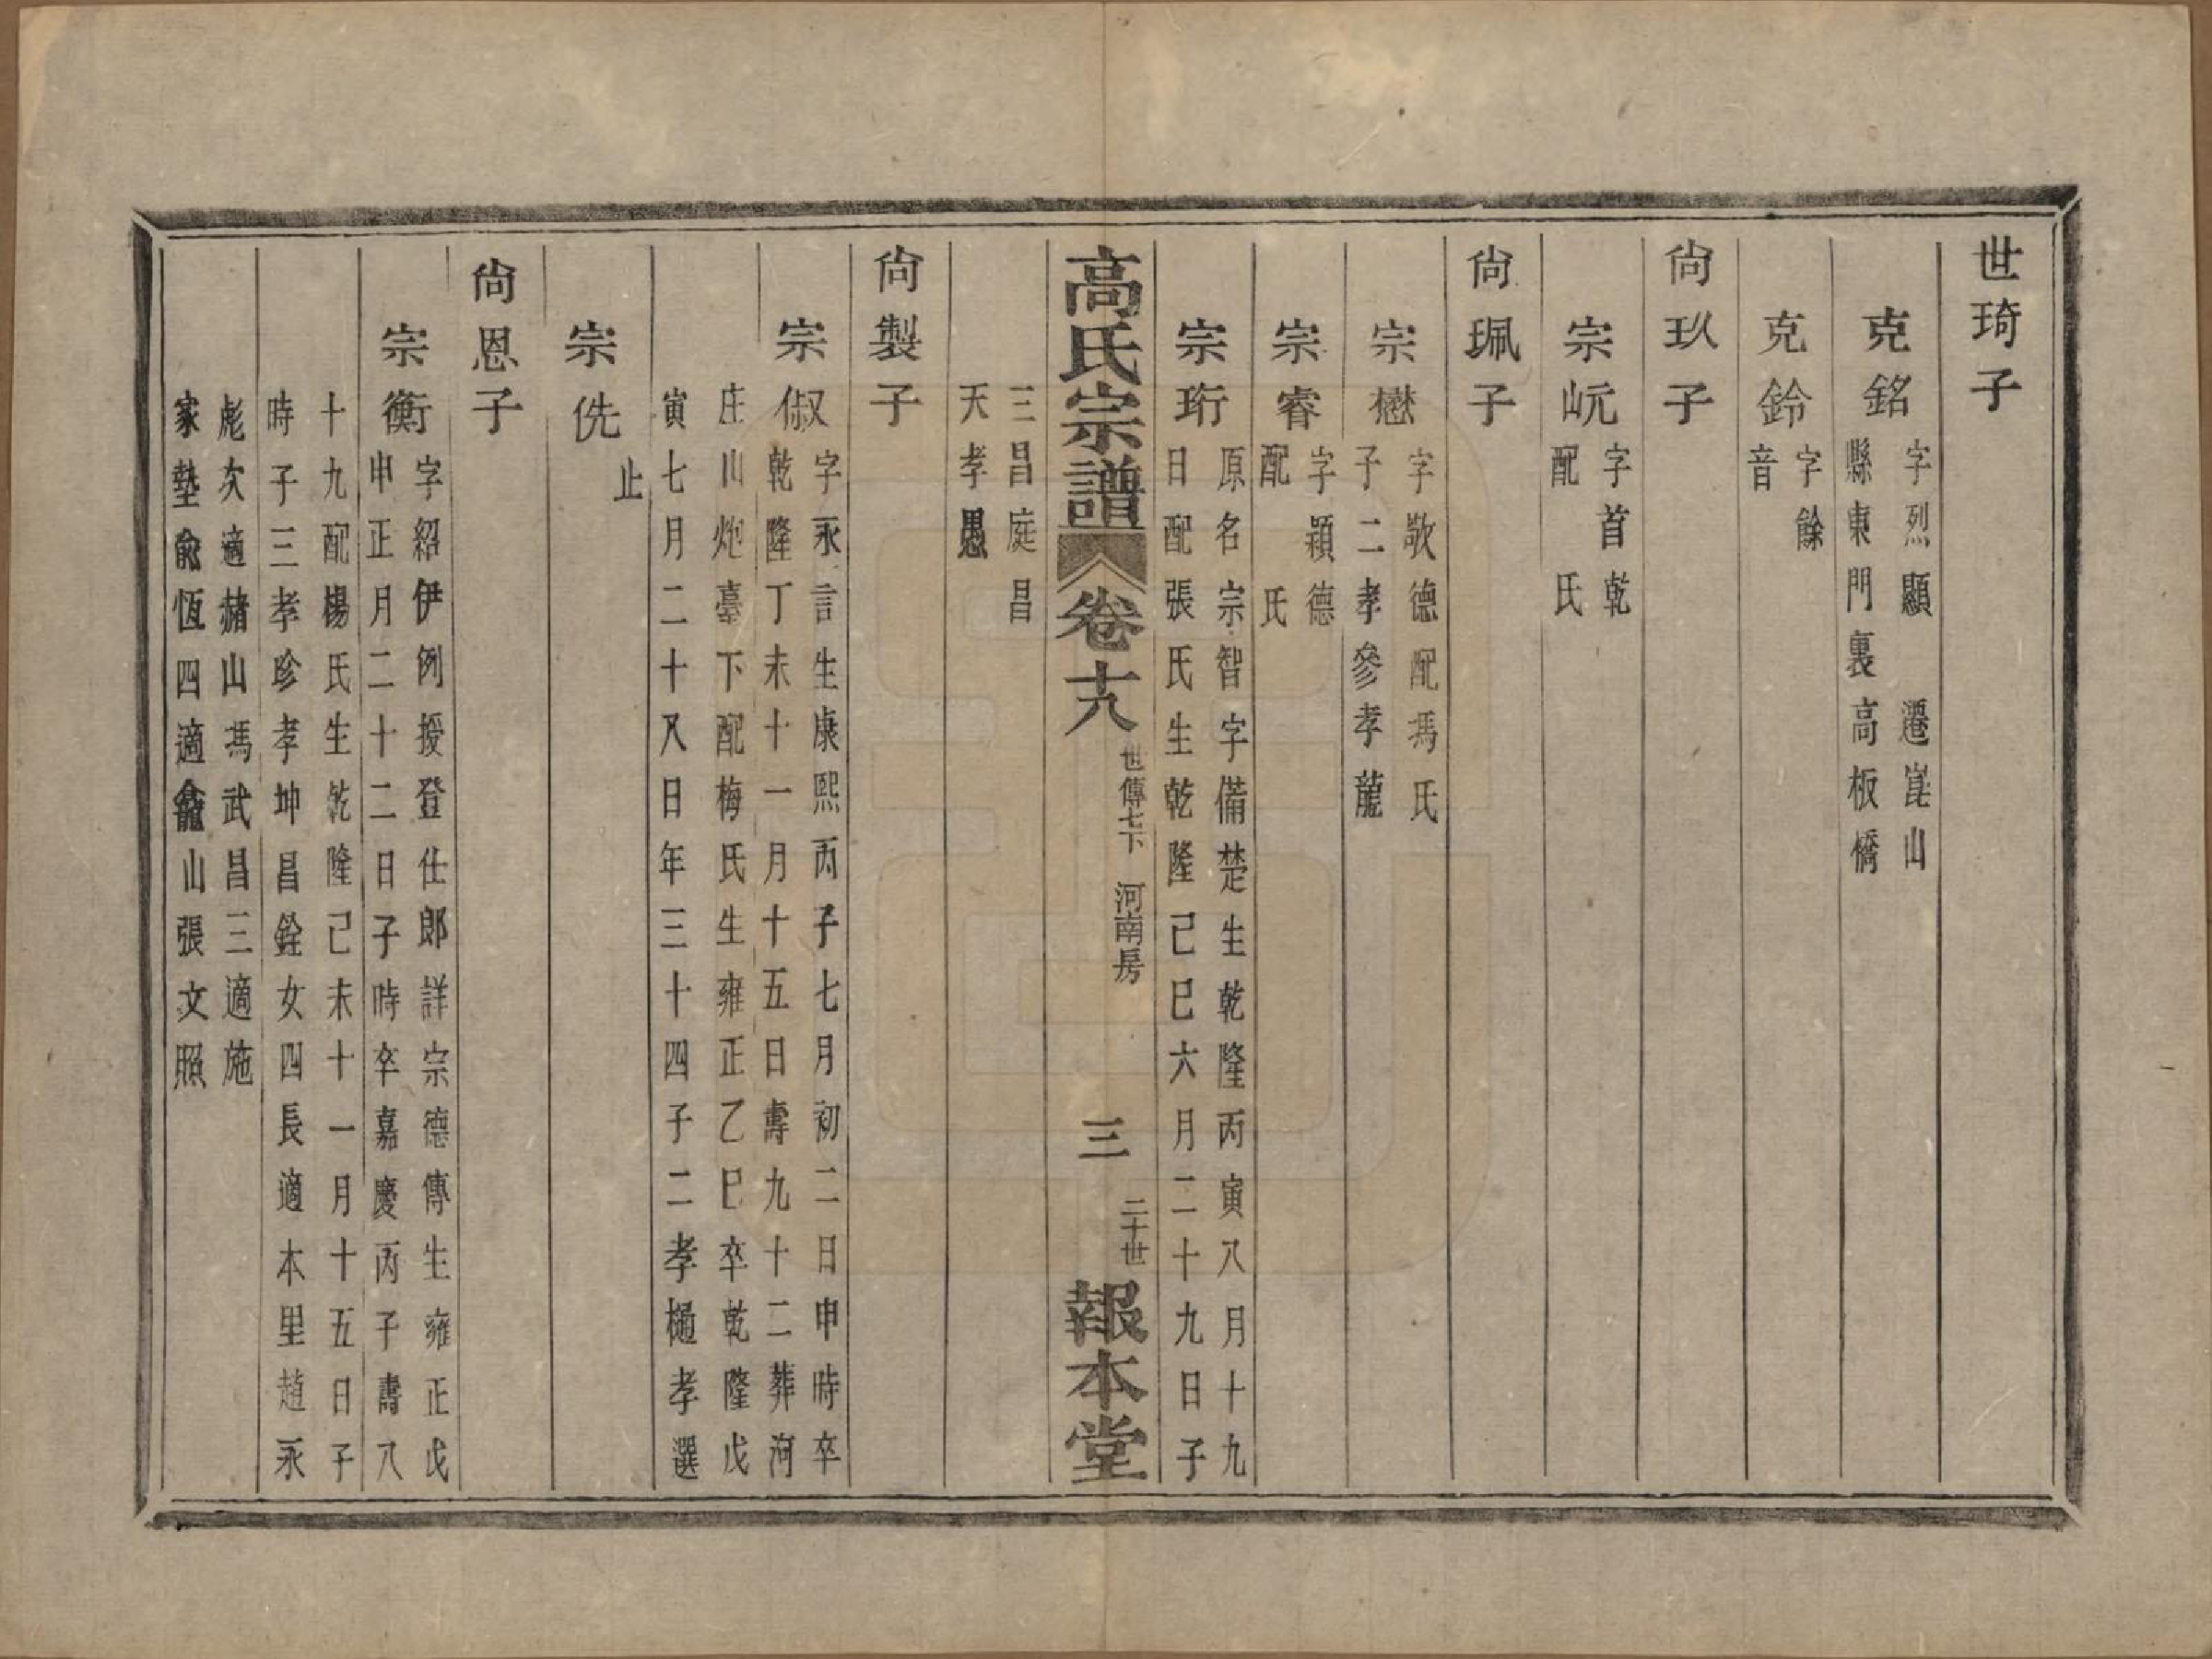 世琦子
克銘
字烈顯　遷崑山
縣東門裏高板橋
克鈴
字餘
音
尙玖子
宗岏
字首乾
配　氏
尙珮子
宗懋
字敬德配馮氏
子二孝參孝龍
宗睿
字穎德
配　氏
宗珩
原名宗智字備楚生乾隆丙寅八月十九
日配張氏生乾隆己巳六月二十九日子
高氏宗譜
卷十八
世傳七下　河南房
三
二十世
報本堂
三昌庭昌
天孝愚
尙製子
宗俶
字永言生康熙丙子七月初二日申時卒
乾隆丁未十一月十五日壽九十二葬河
庄山炮臺下配梅氏生雍正乙巳卒乾隆戊
寅七月二十又日年三十四子二孝樋孝選
宗侁
止
尙恩子
宗衡
字紹伊例授登仕郎詳宗德傳生雍正戊
申正月二十二日子時卒嘉慶丙子壽八
十九配楊氏生乾隆己未十一月十五日子
時子三孝珍孝坤昌銓女四長適本里趙永
彪次適赭山馮武昌三適施
家墊俞恆四適龕山張文照